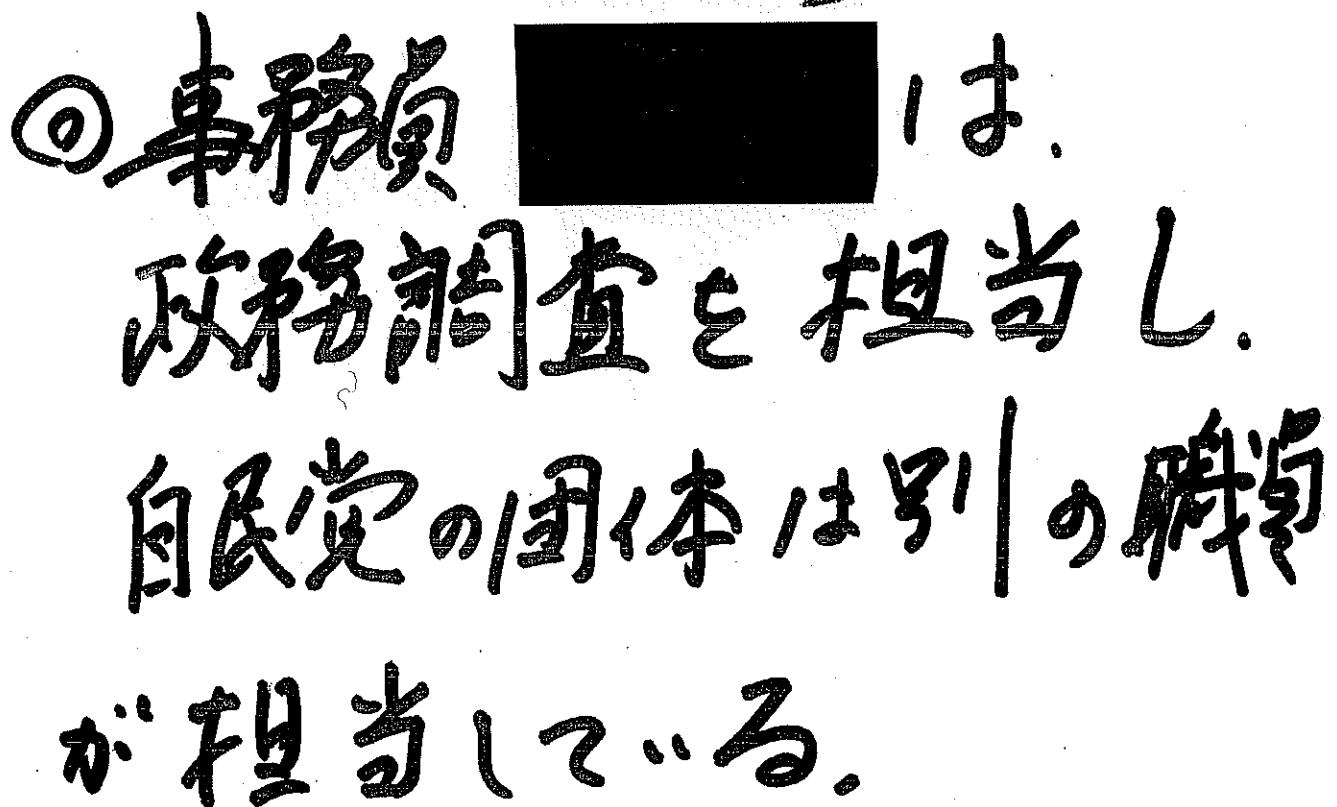 ◎事務員 は、
政務調査を担当し、
自民党の団体は別の職員
が担当している。